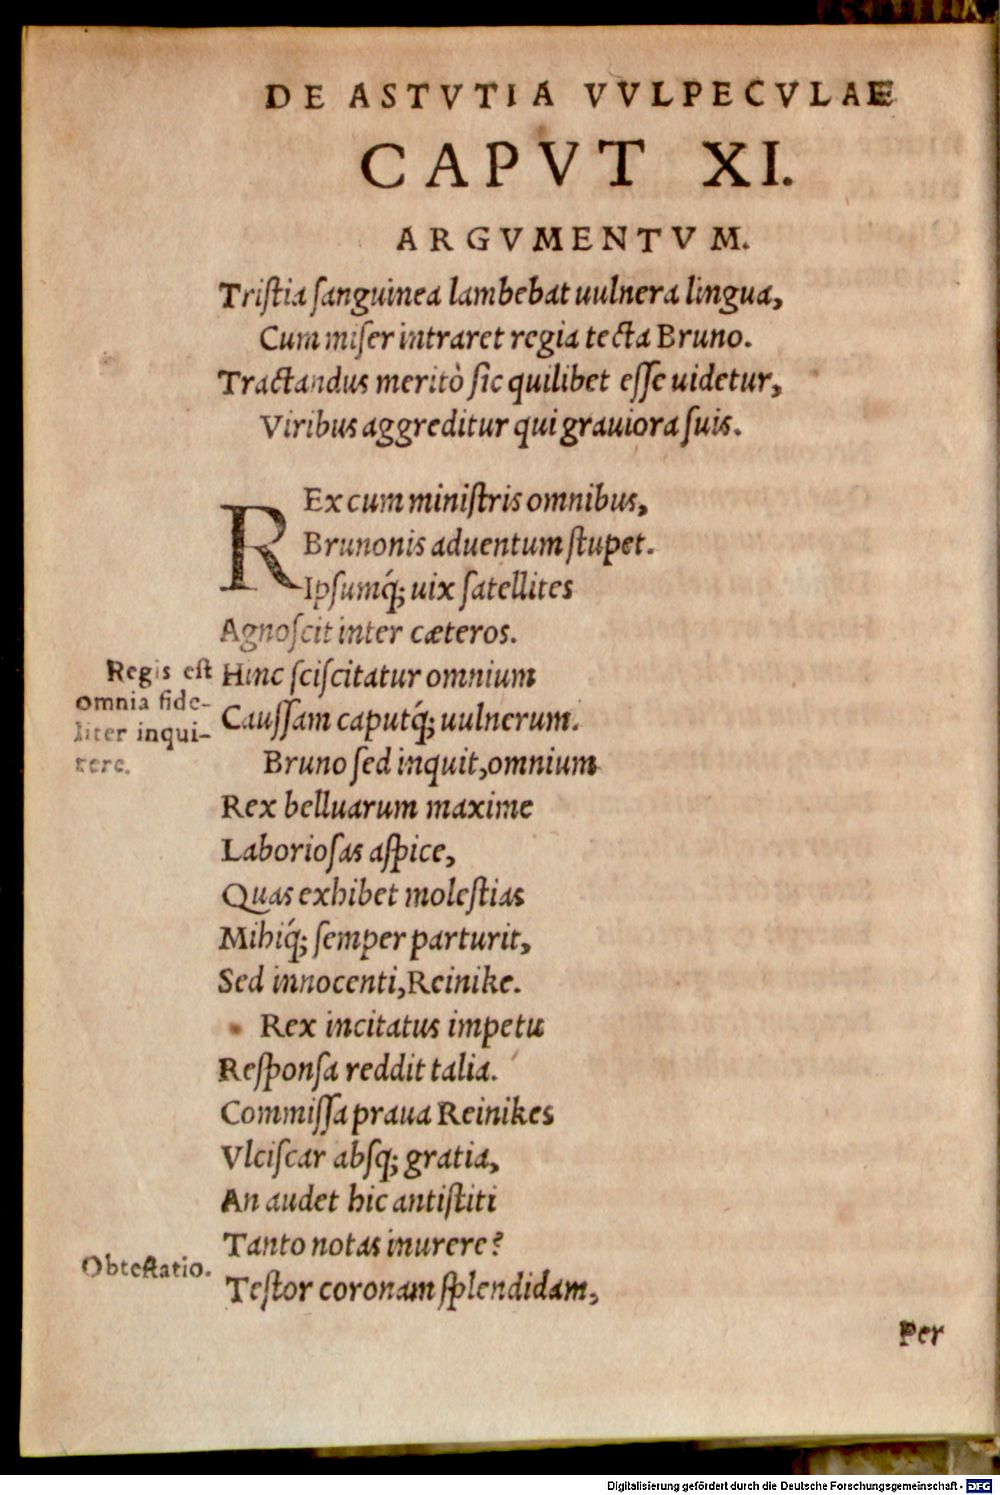 DE ASTVTIA VVLPECVLAE
CAPVT XI.
ARGVMENTVM.
Triſtia ſanguinea lambebat uulnera lingua,
Cum miſer intraret regia tecta Bruno.
Tractandus meritò ſic quilibet eſſe uidetur,
Viribus aggreditur qui grauiora ſuis.
REx cum miniſtris omnibus,
Brunonis aduentum ſtupet.
Ipſumq́; uix ſatellites
Agnoſcit inter cæteros.
Regis est
omnia fide-
liter inqui-
rere.
Hinc ſciſcitatur omnium
Cauſſam caputq́; uulnerum.
Bruno ſed inquit, omnium
Rex belluarum maxime
Laborioſas aſpice,
Quas exhibet moleſtias
Mihiq́; ſemper parturit,
Sed innocenti, Reinike.
Rex incitatus impetu
Reſponſa reddit talia.
Commiſſa praua Reinikes
Vlciſcar abſq; gratia,
An audet hic antiſtiti
Tanto notas inurere?
Obtestatio.
Teſtor coronam ſplendidam,
Per
Digitalisierung gefördert durch die Deutsche Forschungsgemeinschaft - DFG